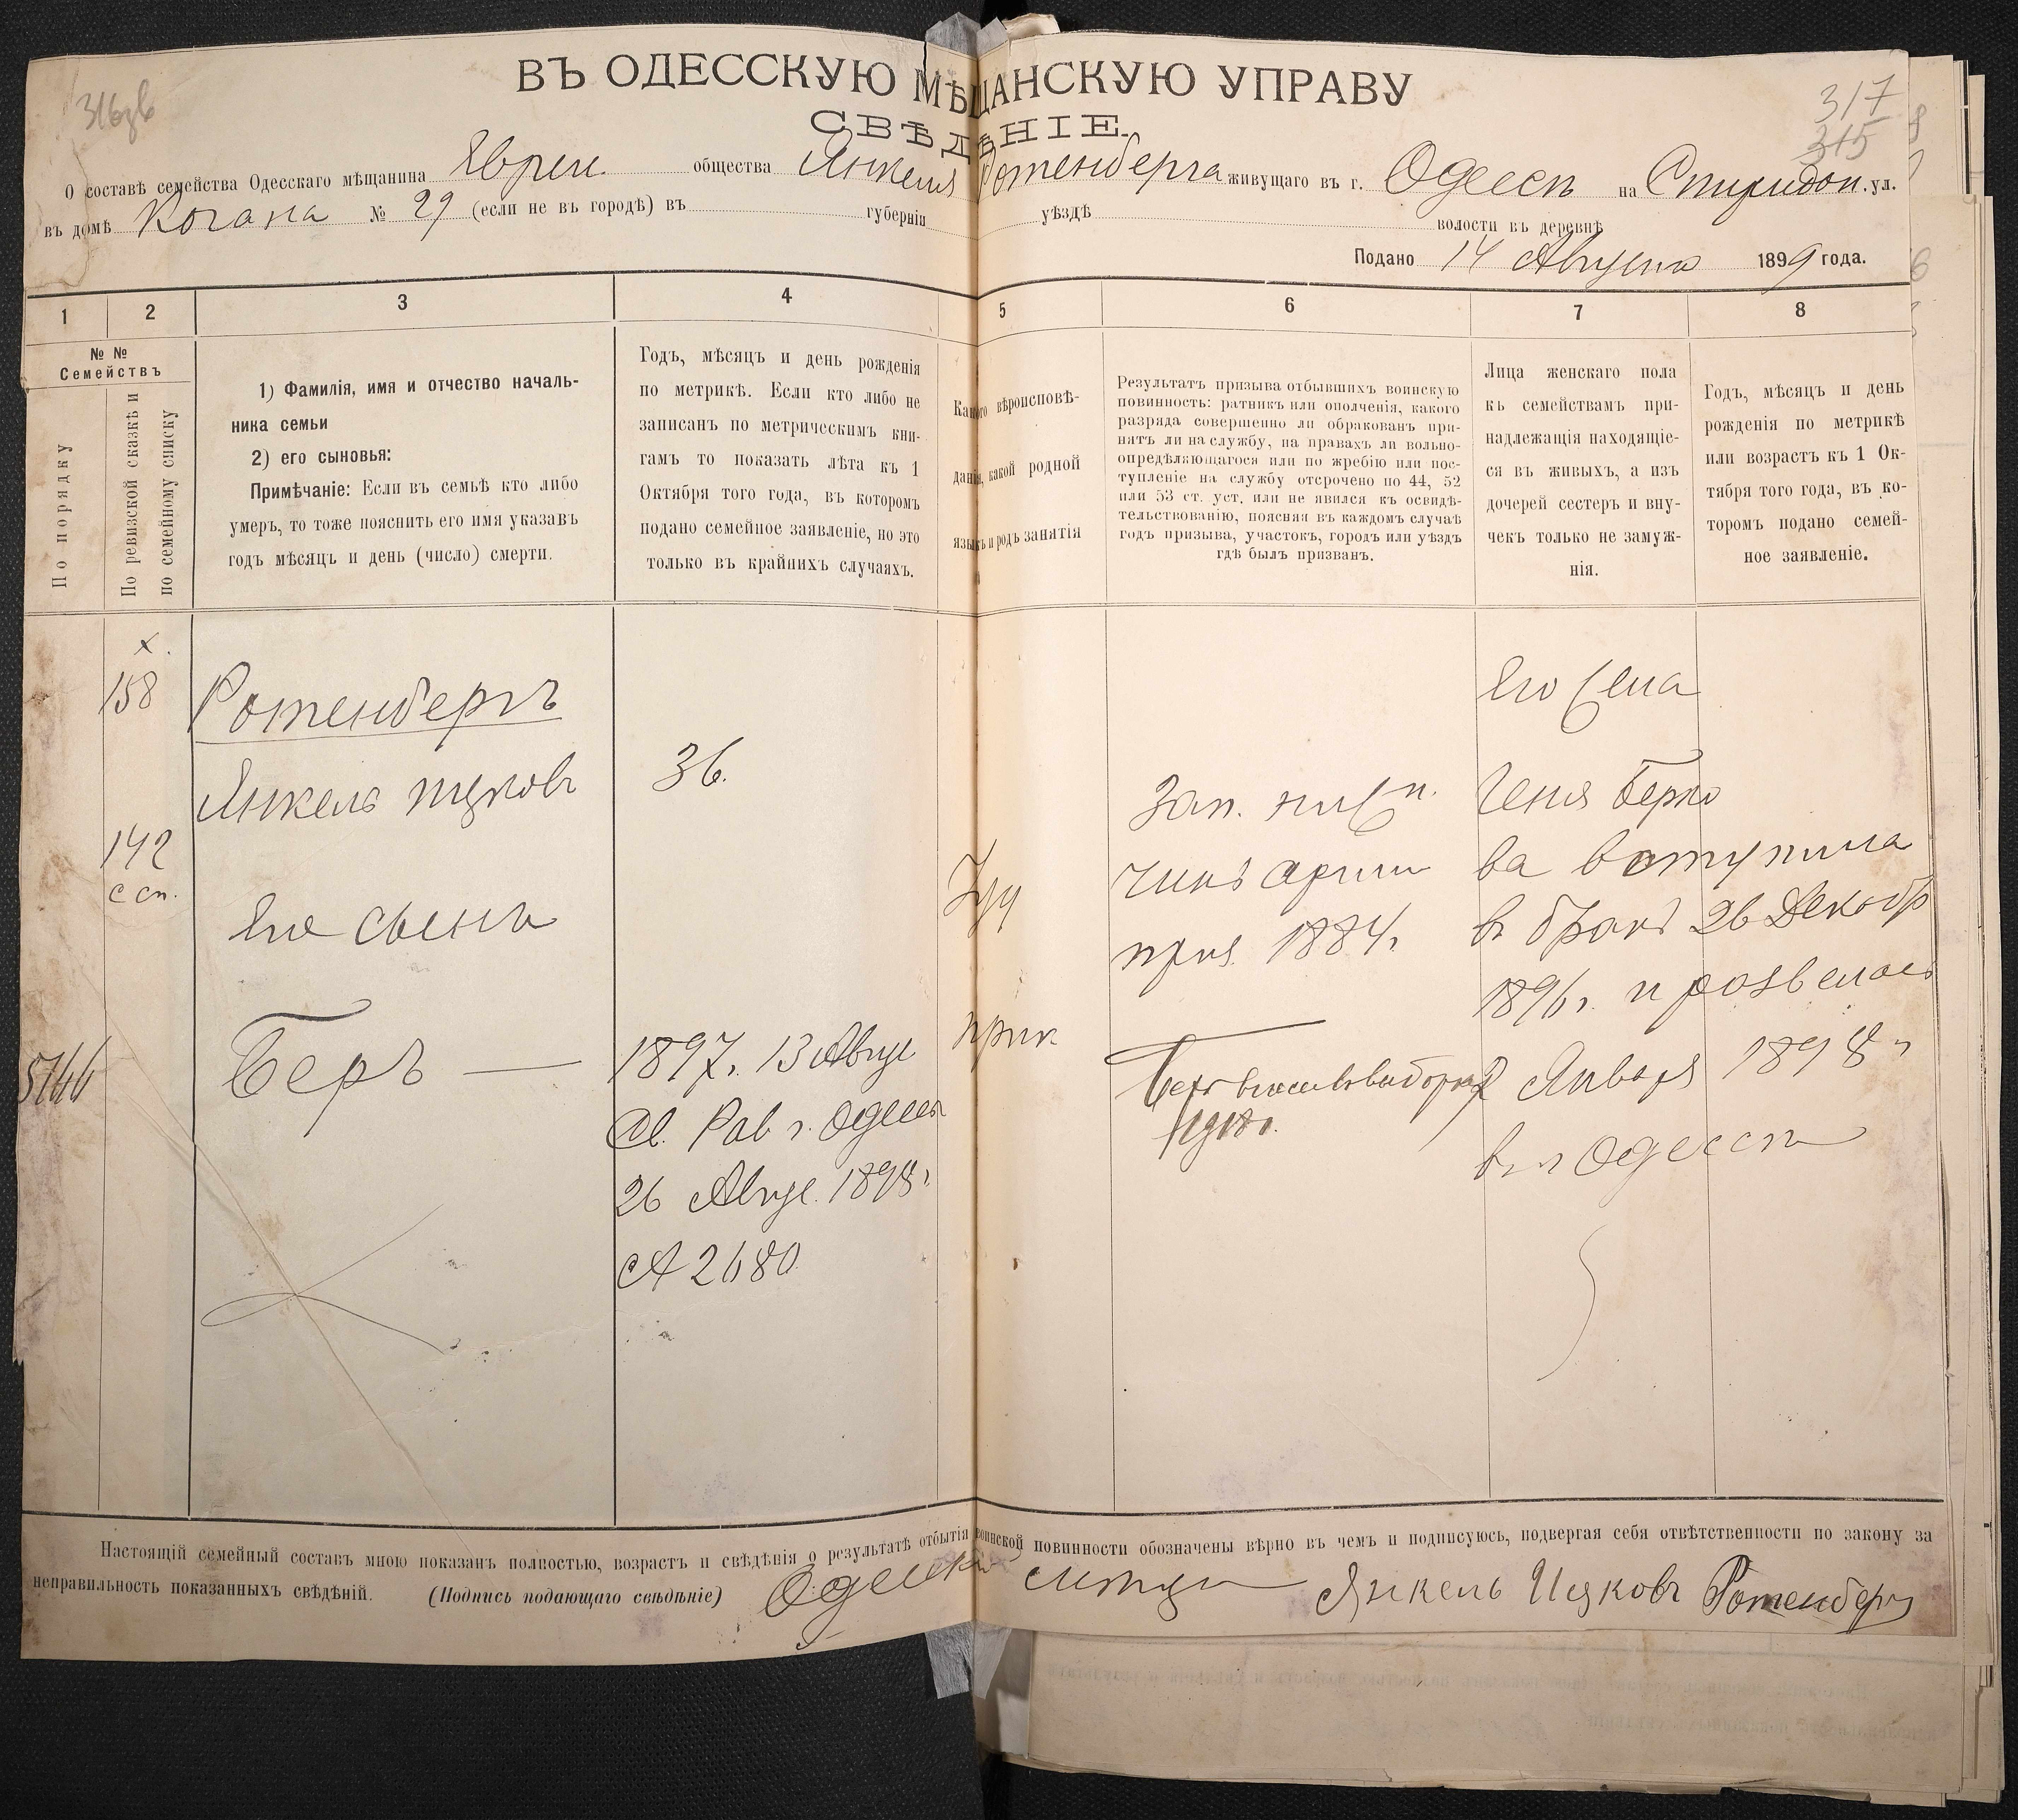 ВЪ ОДЕССКУЮ МѢЩАНСКУЮ УПРАВУ
СВѢДѢНІЕ.
317
315
О составѣ семейства Одесскаго мѣщанина Еврей. общества Янкеля Ротенберга живущаго въ г. Одессѣ на Спиридон. ул.
въ домѣ Когана № 29 (если не въ городѣ) въ губерніи уѣздѣ волости въ деревнѣ
Подано 14 Августа 1899 года.
1 2 3 4 5 6 7 8
№ №
Семействъ
По порядку
По ревизской сказкѣ и
по семейному списку
1) Фамилія, имя и отчество началь-
ника семьи
2) его сыновья:
Примѣчаніе: Если въ семьѣ кто либо
умеръ, то тоже пояснить его имя указавъ
годъ мѣсяцъ и день (число) смерти.
Годъ, мѣсяцъ и день рожденія
по метрикѣ. Если кто либо не
записанъ по метрическимъ кни-
гамъ то показать лѣта къ 1
Октября того года, въ которомъ
подано семейное заявленіе, но это
только въ крайнихъ случаяхъ.
Какого вѣроисповѣ-
данія, какой родной
языкъ и родъ занятія
Результатъ призыва отбывшихъ воинскую
повинность: ратникъ или ополченія, какого
разряда совершенно ли обракованъ при-
нятъ ли на службу, на правахъ ли вольно-
опредѣляющагося или по жребію или пос-
тупленіе на службу отсрочено по 44, 52
или 53 ст. уст. или не явился къ освидѣ-
тельствованію, поясняя въ каждомъ случаѣ
годъ призыва, участокъ, городъ или уѣздъ
гдѣ былъ призванъ.
Лица женскаго пола
къ семействамъ при-
надлежащія находящіе-
ся въ живыхъ, а изъ
дочерей сестеръ и вну-
чекъ только не замуж-
нія.
Годъ, мѣсяцъ и день
рожденія по метрикѣ
или возрастъ къ 1 Ок-
тября того года, въ ко-
торомъ подано семей-
ное заявленіе.
158
Ротенбергъ
Янкель Ицковъ
36.
142
с сп.
Его сынъ
5746
Беръ
1897 г. 13 Авгус
Св. Рав г. Одессы
26 Авгус. 1898 г
№ 2680
Іуд
прик
Зап.
чинъ арміи
приз. 1884 г.
Его жена
Геня Берко
ва вступила
в бракъ 26 Декабр
1896 г. и развелась
2 Января 1898 г
в г Одессѣ
Настоящій семейный составъ мною показанъ полностью, возрастъ и свѣдѣнія о результатѣ отбытія воинской повинности обозначены вѣрно въ чемъ и подписуюсь, подвергая себя отвѣтственности по закону за
неправильность показанныхъ свѣдѣній. (Подпись подающаго свѣдѣніе) Одесскій Янкель Ицковъ Ротенбергъ